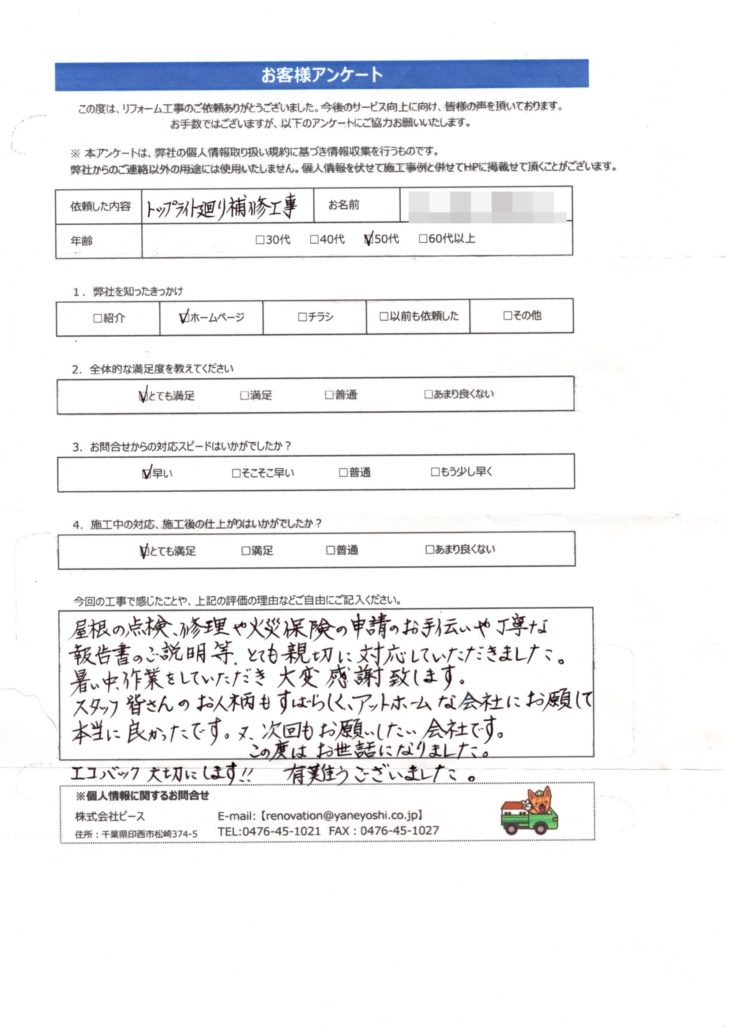 お客様アンケート
この度は、リフォーム工事のご依頼ありがとうございました。今後のサービス向上に向け、皆様の声を頂いております。
お手数ではございますが、以下のアンケートにご協力お願いいたします。
※ 本アンケートは、弊社の個人情報取り扱い規約に基づき情報収集を行うものです。
弊社からのご連絡以外の用途には使用いたしません。個人情報を伏せて施工事例と併せてHPに掲載せて頂くことがございます。
依頼した内容 トップライト廻り補修工事 お名前
年齢 □30代 □40代 ☑50代 □60代以上
1．弊社を知ったきっかけ
□紹介 ☑ホームページ □チラシ □以前も依頼した □その他
2．全体的な満足度を教えてください
☑とても満足 □満足 □普通 □あまり良くない
3．お問合せからの対応スピードはいかがでしたか？
☑早い □そこそこ早い □普通 □もう少し早く
4．施工中の対応、施工後の仕上がりはいかがでしたか？
☑とても満足 □満足 □普通 □あまり良くない
今回の工事で感じたことや、上記の評価の理由などご自由にご記入ください。
屋根の点検、修理や火災保険の申請のお手伝いや丁寧な
報告書のご説明等、とても親切に対応していただきました。
暑い中、作業をしていただき 大変 感謝致します。
スタッフ皆さんのお人柄もすばらしく、アットホームな会社にお願して
本当に良かったです。又、次回もお願いしたい会社です。
この度は お世話になりました。
エコバック大切にします!! 有難うございました。
※個人情報に関するお問合せ
株式会社ピース E-mail:【renovation@yaneyoshi.co.jp】
住所：千葉県印西市松崎374-5 TEL:0476-45-1021 FAX：0476-45-1027